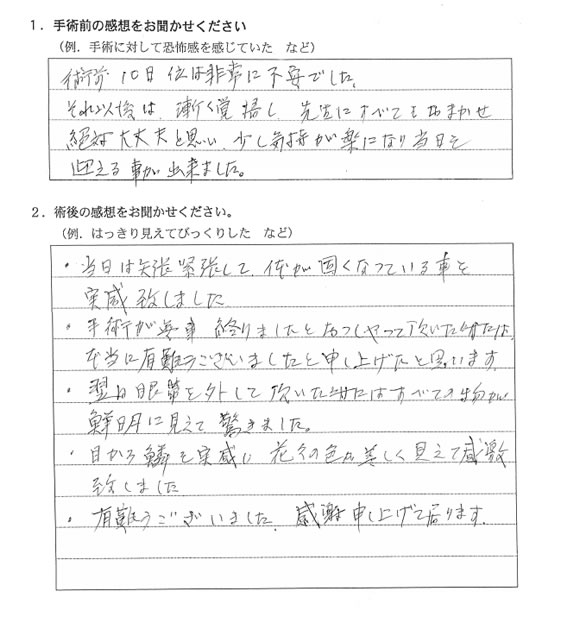 1．手術前の感想をお聞かせください
（例．手術に対して恐怖感を感じていた　など）
術前10日位は非常に不安でした。
それ以後は、漸く覚悟し、先生にすべてをおまかせ
絶対大丈夫と思い、少し気持が楽になり当日を
迎える事が出来ました。
2．術後の感想をお聞かせください。
（例．はっきり見えてびっくりした　など）
・当日は矢張緊張して、体が固くなっている事を
実感致しました
・手術が無事終りましたとおっしゃって頂いた時には、
本当に有難うございましたと申し上げたと思います。
・翌日眼帯を外して頂いた時にはすべての物が
鮮明に見えて驚きました。
・目から鱗を実感し花々の色が美しく見えて感激
致しました
・有難うございました。感謝申し上げて居ります。